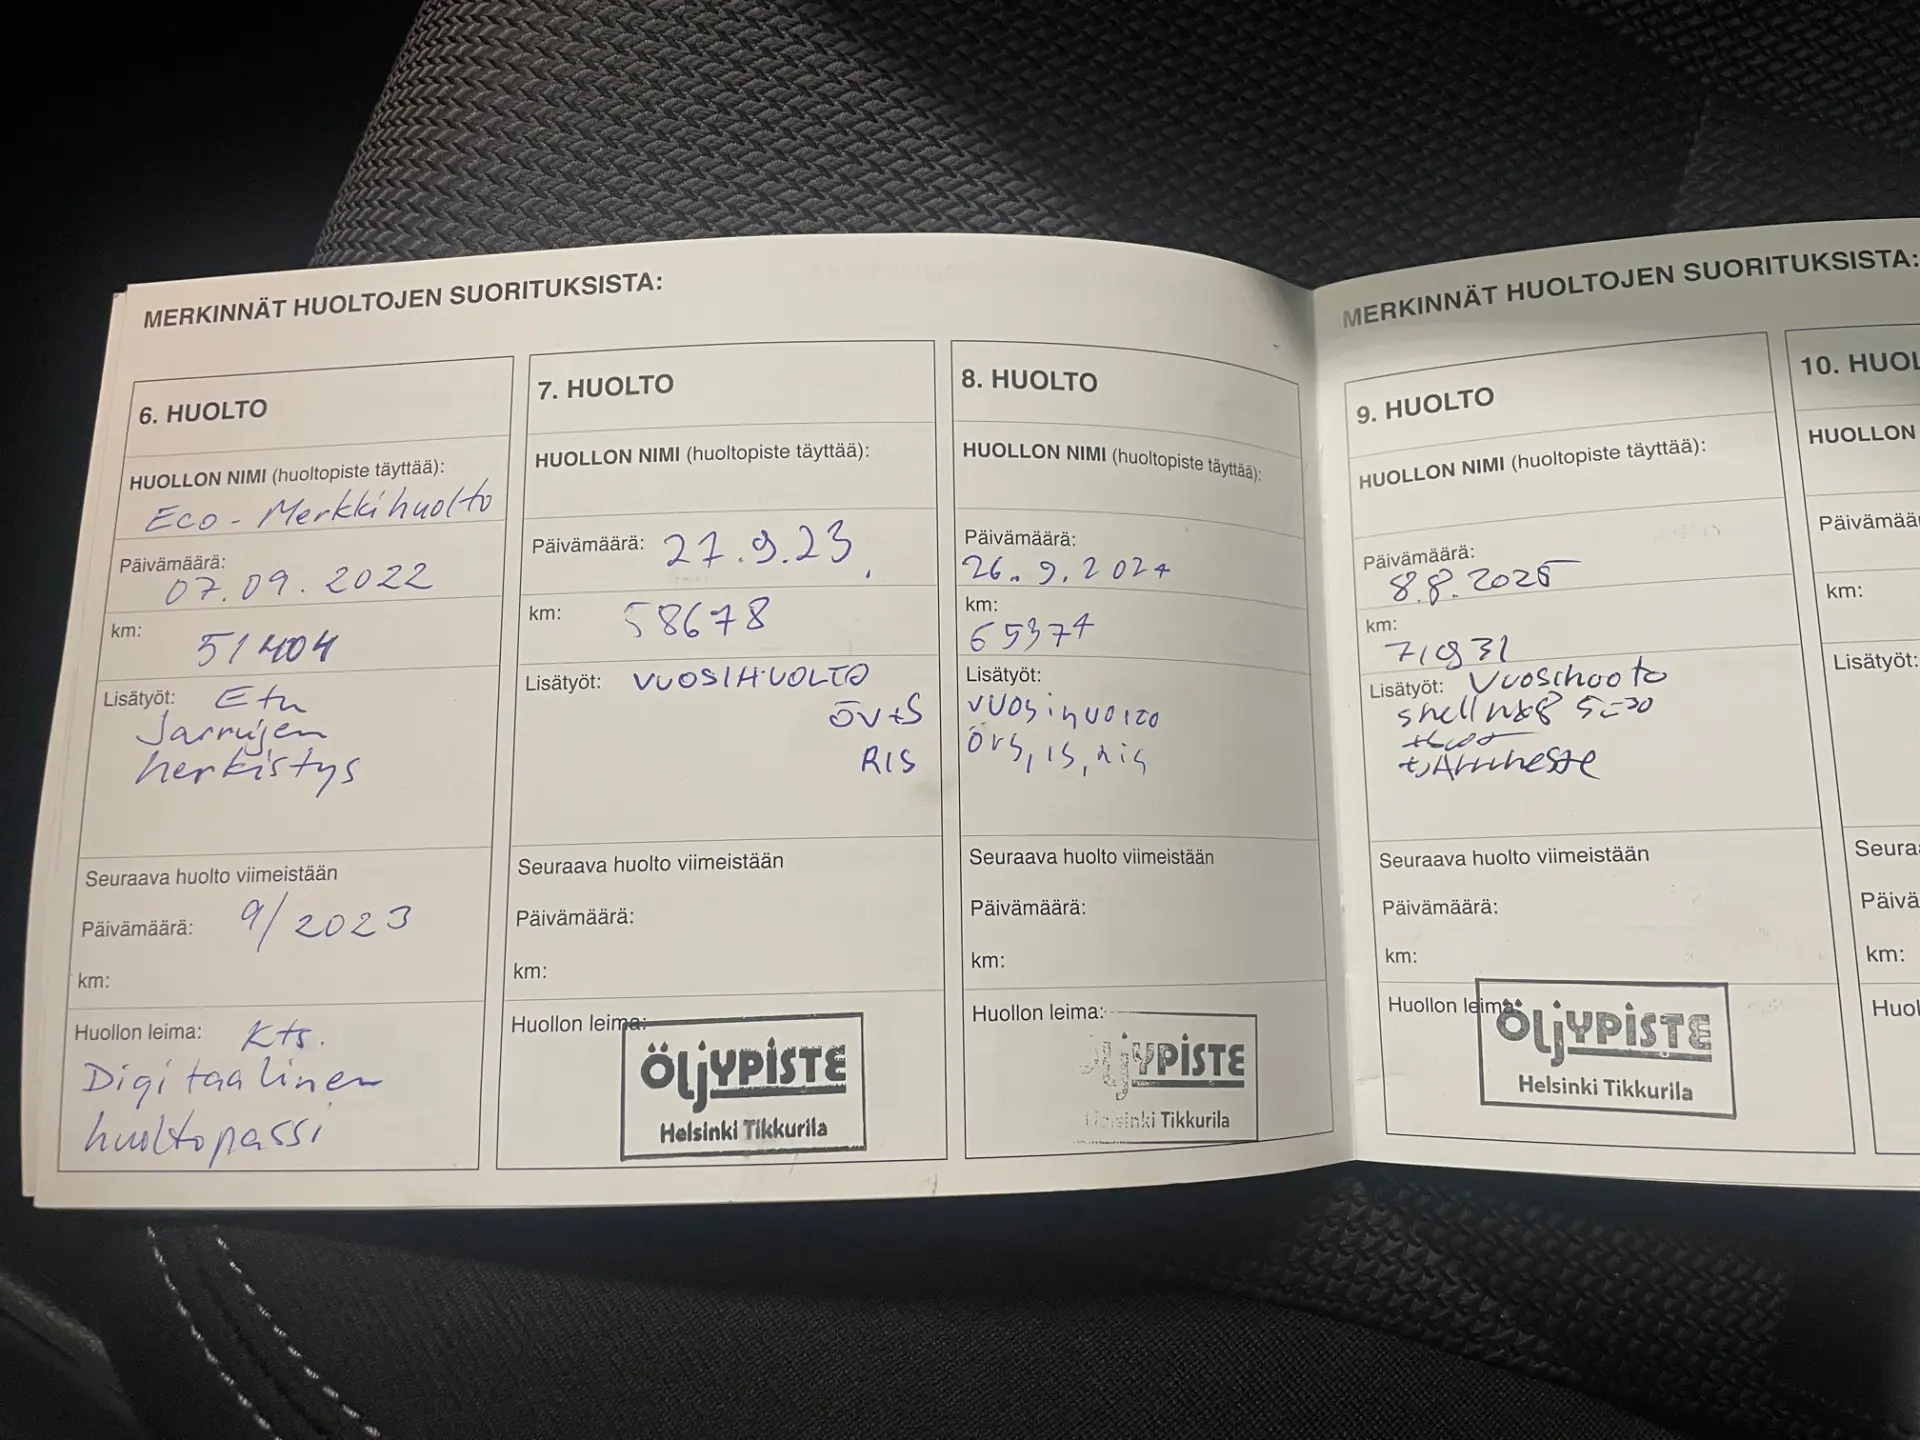 MERKINNÄT HUOLTOJEN SUORITUKSISTA:
6. HUOLTO
HUOLLON NIMI (huoltopiste täyttää):
Eco - Merkkihuolto
Päivämäärä:
07.09.2022
km:
51404
Lisätyöt: Etu
Jarrujen
herkistys
Seuraava huolto viimeistään
Päivämäärä: 9/2023
km:
Huollon leima: Kts.
Digitaalinen
huoltopassi
7. HUOLTO
HUOLLON NIMI (huoltopiste täyttää):
Päivämäärä: 27.9.23
km: 58678
Lisätyöt: VUOSIHUOLTO
ÖV+S
RIS
Seuraava huolto viimeistään
Päivämäärä:
km:
Huollon leima:
ÖLJYPISTE
Helsinki Tikkurila
8. HUOLTO
HUOLLON NIMI (huoltopiste täyttää):
Päivämäärä:
26.9.2024
km:
65374
Lisätyöt:
vuosihuolto
övs, is, ris
Seuraava huolto viimeistään
Päivämäärä:
km:
Huollon leima:
ÖLJYPISTE
Helsinki Tikkurila
MERKINNÄT HUOLTOJEN SUORITUKSISTA:
9. HUOLTO
HUOLLON NIMI (huoltopiste täyttää):
Päivämäärä:
8.8.2025
km:
Lisätyöt:
shell
Seuraava huolto viimeistään
Päivämäärä:
km:
Huollon leima:
ÖLJYPISTE
Helsinki Tikkurila
10. HUOL
HUOLLON
Päivämää
km:
Lisätyöt:
Seura
Päivä
km:
Huol